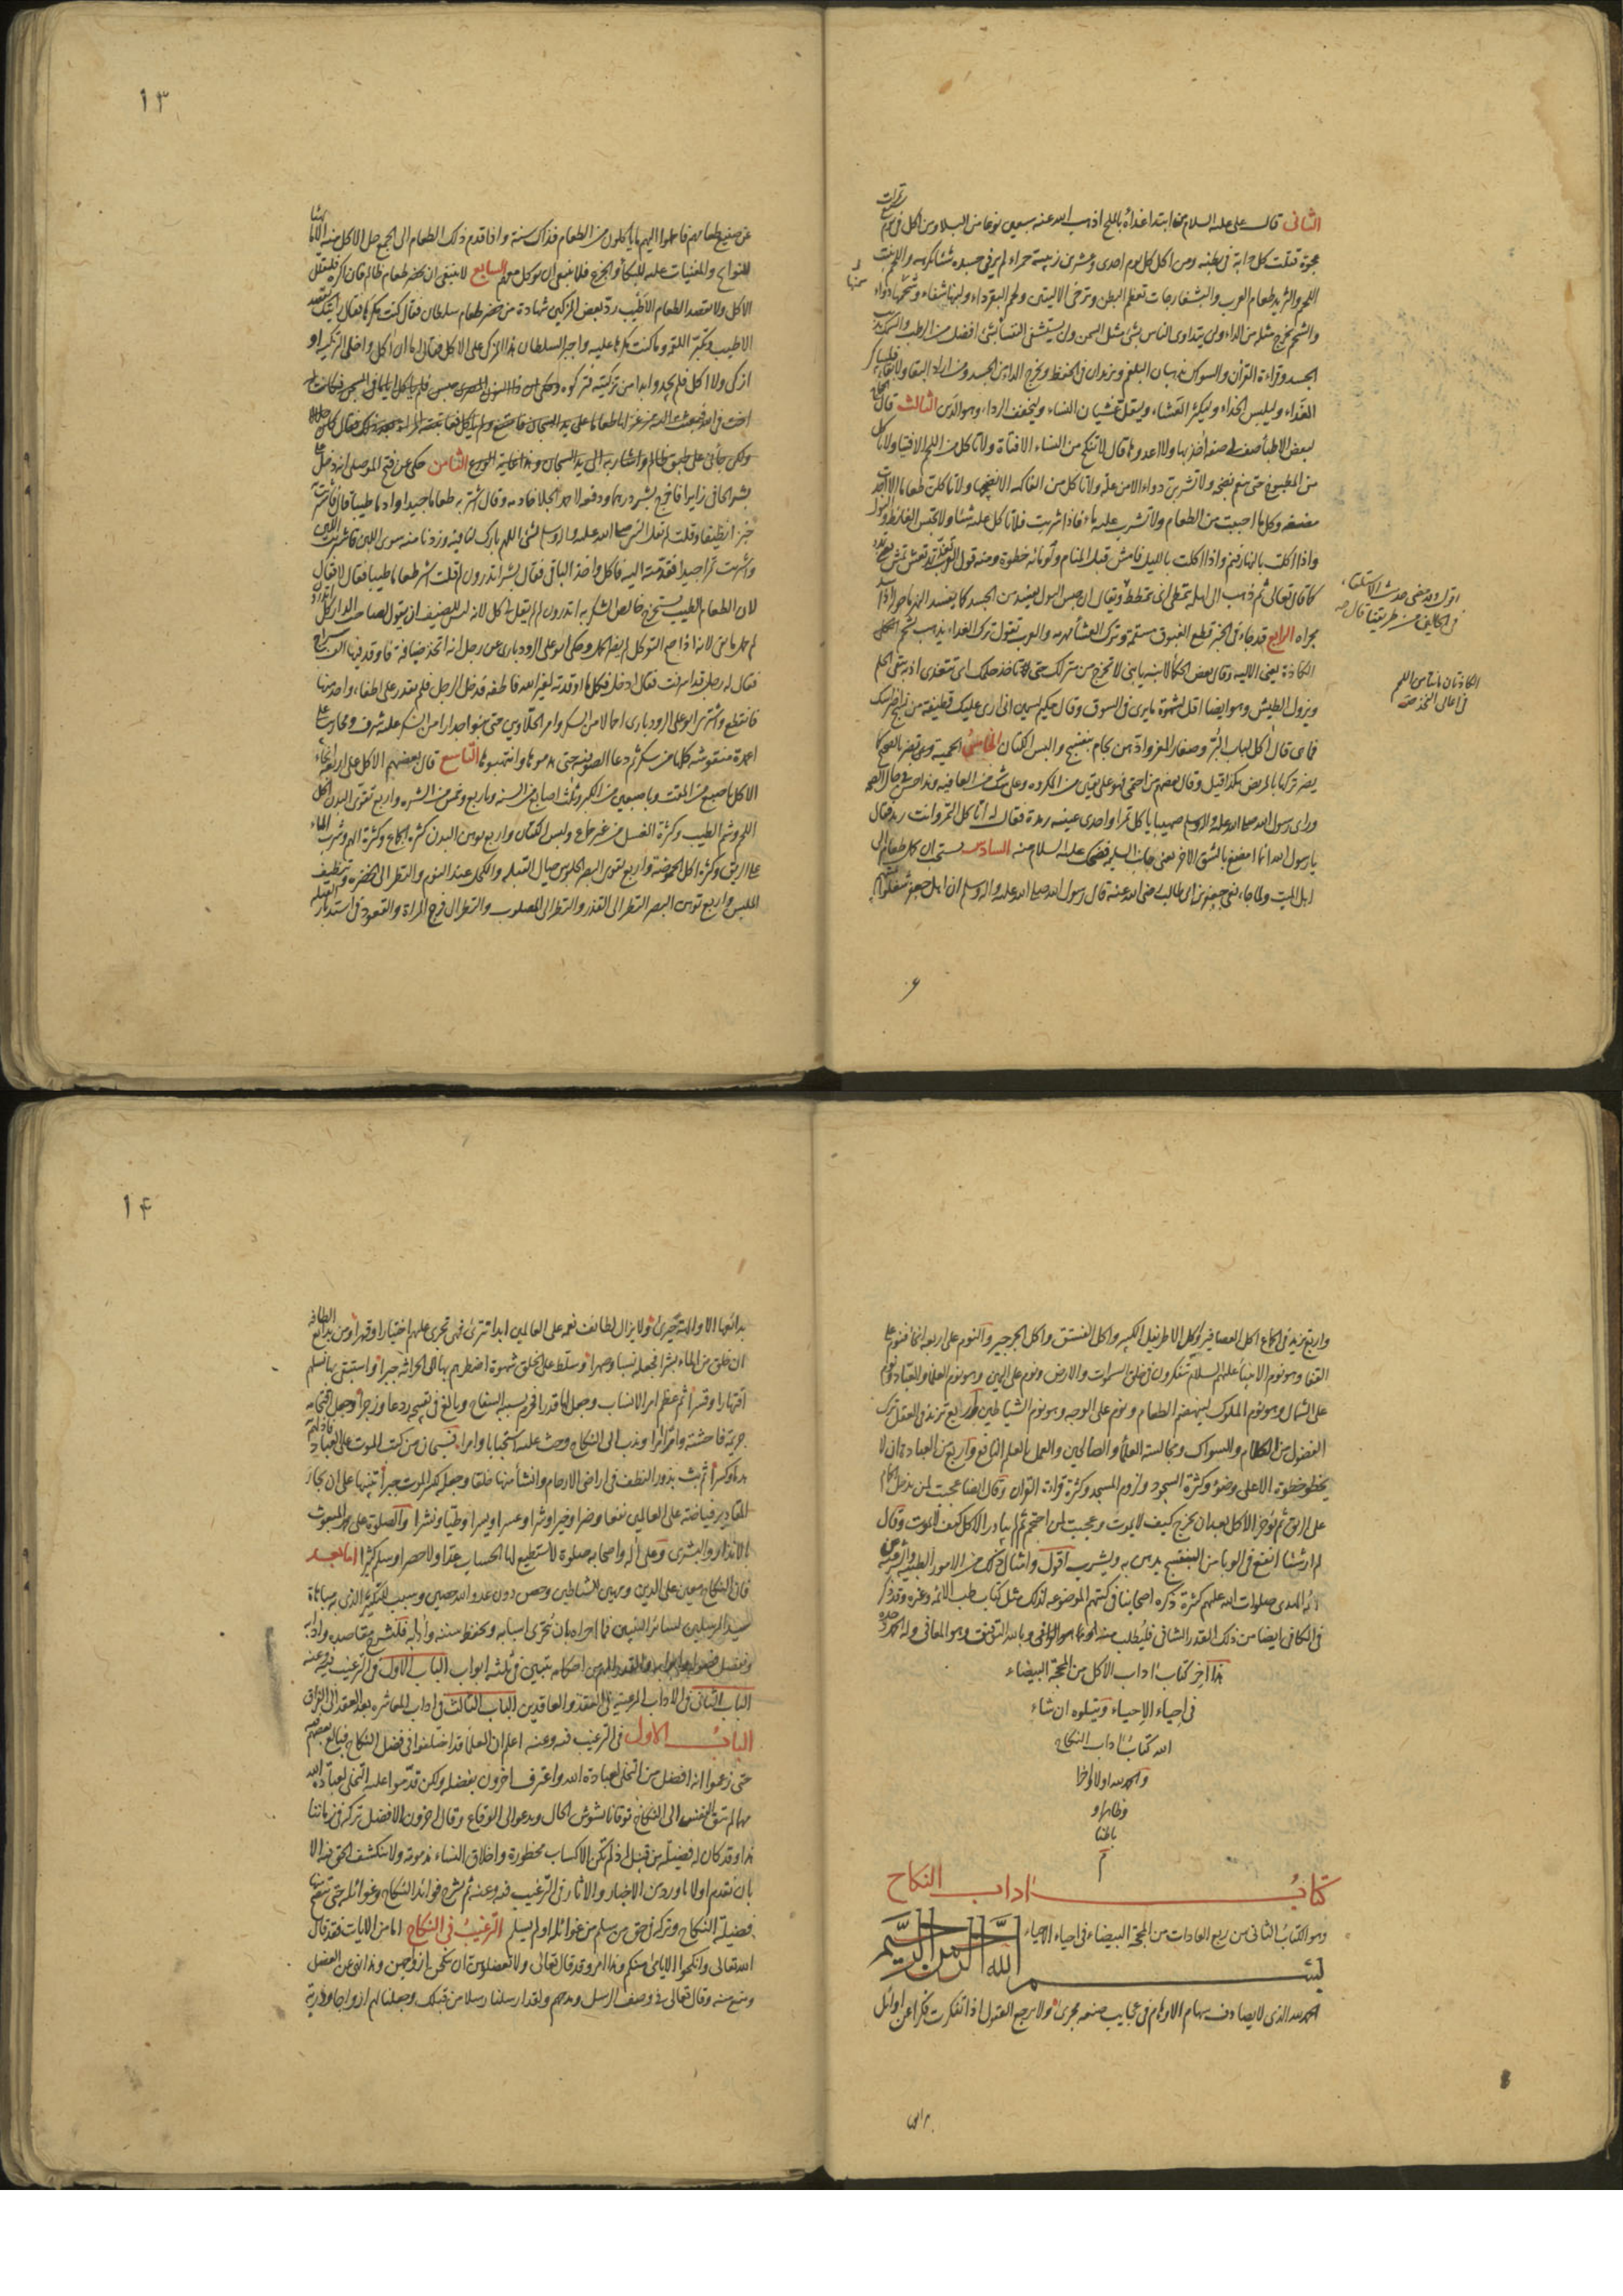 الثانى قال على عليه السلام من ابتدا غذاءه بالملح اذهب الله عنه سبعين نوعا من البلاء ومن اكل فى يوم سبع تمرات
عجوة قتلت كل دابة فى بطنه ومن اكل كل يوم احدى وعشرين زبيبة حمراء لم ير فى جسده شيئا يكرهه واللحم ينبت
اللحم والثريد طعام العرب والبشقارجات تعظم البطن وترخى الاليتين ولحم البقر داء ولبنها شفاء وسمنها دواء
والشحم يخرج مثله من الداء ولن يتداوى الناس بشئ مثل السمن ولن يستشفى النفساء بشئ افضل من الرطب والسمك يذيب
الجسد وقراءة القرآن والسواك يذهبان البلغم ويزيدان فى الحفظ ومن اراد البقاء ولا بقاء فليباكر
الغداء وليلبس الحذاء وليكره العشاء وليقل غشيان النساء وليخفف الرداء وهو الدين الثالث قال الحجاج
لبعض الاطباء صف لى صفة اخذ بها ولا اعدوها قال لا تنكح من النساء الا فتاة ولا تاكل من اللحم الا فتيا ولا تاكل
من المطبوخ حتى ينعم نضجه ولا تشربن دواء الا من علة ولا تاكل من الفاكهة الا نضيجها ولا تاكلن طعاما الا اجدت
مضغه وكل ما احببت من الطعام ولا تشرب عليه ماء فاذا شربت فلا تاكل عليه شيئا ولا تحبس الغائط والبول
واذا اكلت بالنهار فنم واذا اكلت بالليل فامش قبل المنام ولو مائة خطوة ومنه قول العرب تغد تمد تعش تمش
كما قال تعالى ثم ذهب الى اهله يتمطى اى يتمطط ويقال ان حبس البول يفسد من الجسد كما يفسد النهر ما حوله اذا سد
مجراه الرابع قد جاء فى الخبر قطع العروق مسقمة وترك العشاء مهرمة والعرب تقول ترك الغداء يذهب بشحم
الكاذة يعنى الالية وقال بعض الحكماء لابنه يا بنى لا تخرج من منزلك حتى تاخذ حلمك اى تتغدى اذ به يبقى الحلم
ويزول الطيش وهو ايضا اقل لشهوة ما يرى فى السوق وقال حكيم لسمين انى ارى عليك قطيفة من نسج اضراسك
فما هى قال اكل لباب البر وصغار المعز وادهن بجام بنفسج والبس الكتان الخامس الحمية تضر بالصحيح كما
يضر تركها بالمريض هكذا قيل وقال بعضهم من احتمى فهو على يقين من المكروه وعلى شك من العافية وهذا حسن فى حال الصحة
وراى رسول الله صلى الله عليه واله وسلم صهيبا ياكل تمرا واحدى عينيه رمدة فقال له اتاكل التمر وانت رمد فقال
يا رسول الله انما امضغ بالشق الاخر يعنى جانب السليمة فضحك عليه السلام منه السادس يستحب ان يحمل طعام الى
اهل الميت ولما جاء نعى جعفر بن ابى طالب رضى الله عنه قال رسول الله صلى الله عليه واله وسلم ان ال جعفر شغلوا
١٣
عن صنيع طعامهم فاحملوا اليهم ما ياكلون من الطعام فذاك سنة واذا قدم ذلك الطعام الى الجمع حل الاكل منه الا ما يهيا
للنوائح والمعينات عليه للبكاء والجزع فلا ينبغى ان يوكل معهم السابع لا ينبغى ان يحضر طعام ظالم فان اكره فليقلل
الاكل ولا يقصد الطعام الاطيب رد بعض المزكين شهادة من حضر طعام سلطان فقال كنت مكرها فقال رايتك تقصد
الاطيب وتكبر اللقمة وما كنت مكرها عليه واجبر السلطان هذا المزكى على الاكل فقال اما ان اكل واخلى التزكية او
ازكى ولا اكل فلم يجدوا بدا من تزكيته فتركوه وحكى ان ذا النون المصرى حبس فلم ياكل اياما فى السجن فكانت له
ولكن جائنى على طبق ظالم واشار به الى يد السجان وهذا غاية الورع الثامن حكى عن فتح الموصلى انه دخل على
بشر الحافى زايرا فاخرج بشر درهما ودفعه لاحمد الجلا خادمه وقال اشتر به طعاما جيدا وادما طيبا قال فاشتريت
خبزا نظيفا وقلت لم يقل النبى صلى الله عليه واله وسلم لشئ اللهم بارك لنا فيه وزدنا منه سوى اللبن فاشتريت اللبن
واشتريت تمرا جيدا فقدمته اليه فاكل واخذ الباقى فقال بشر اتدرون لم قلت اشتر طعاما طيبا فقال لا فقال
لان الطعام الطيب يستخرج خالص الشكر به اتدرون لم لم يقل لى كل لانه ليس للضيف ان يقول لصاحب الدار كل
لم حمل ما بقى لانه اذا صح التوكل لم يضر الحمل وحكى ابو على الرودبارى عن رجل انه اتخذ ضيافة فاوقد فيها الف سراج
فقال له رجل قد اسرفت فقال ادخل فكل ما اوقدته لغير الله فاطفه فدخل الرجل فلم يقدر على اطفاء واحد منها
فانقطع واشترى ابو على الرودبارى احمالا من السكر وامر الحلاويين حتى بنوا جدارا من السكر عليه شرف ومحاريب على
اعمدة منقوشة كلها من سكر ثم دعا الصوفية حتى هدموها وانتهبوها التاسع قال بعضهم الاكل على اربعة انحاء
الاكل باصبع من المقت وباصبعين من الكبر وبثلث اصابع من السنة وباربع وخمس من الشره واربع تقوى البدن اكل
اللحم وشم الطيب وكثرة الغسل من غير جماع ولبس الكتان واربع توهن البدن كثرة الجماع وكثرة الهم وشرب الماء
على الريق وكثرة اكل الحموضة واربع تقوى البصر الجلوس حيال القبلة والكحل عند النوم والنظر الى الخضرة وتنظيف
الملبس واربع توهن البصر النظر الى القذر والنظر الى المصلوب والنظر الى فرج المراة والقعود فى استدبار القبلة
واربع تزيد فى الجماع اكل العصافير واكل الاطريفل الكبير واكل الفستق واكل الجرجير والنوم على اربعة انحاء فنوم على
القفا وهو نوم الانبياء عليهم السلام يتفكرون فى خلق السموات والارض ونوم على اليمين وهو نوم العلماء والعباد ونوم
على الشمال وهو نوم الملوك ليهضم الطعام ونوم على الوجه وهو نوم الشياطين واربع تزيد فى العقل ترك
الفضول من الكلام والسواك ومجالسة العلماء والصالحين والعمل بالعلم النافع واربع من العبادة ان لا
يخطو خطوة الا على وضوء وكثرة السجود ولزوم المسجد وكثرة قراءة القران وقال ايضا عجبت لمن يدخل الحمام
على الريق ثم يؤخر الاكل بعد ان يخرج كيف لا يموت وعجبت لمن احتجم ثم يبادر الاكل كيف لا يموت وقال
لم ار شيئا انفع فى الوبا من البنفسج يدهن به ويشرب اقول وامثال ذلك من الامور الطبية والشرعية عن
ائمة الهدى صلوات الله عليهم كثيرة ذكره اصحابنا فى كتبهم الموضوعة لذلك مثل كتاب طب الائمة وغيره وقد ذكر
فى الكافى ايضا من ذلك القدر الشافى فليطلب منه وبالله التوفيق وهو المعافى وله الحمد وحده
هذا آخر كتاب اداب الاكل من المحجة البيضاء
فى احياء الاحياء ويتلوه ان شاء
الله كتاب اداب النكاح
والحمد لله اولا واخرا
وظاهرا و
باطنا
م
كتاب اداب النكاح
وهو الكتاب الثانى من ربع العادات من المحجة البيضاء فى احياء الاحياء
بسم الله الرحمن الرحيم
الحمد لله الذى لا يصادف سهام الاوهام فى عجايب صنعه مجرى ولا يرجع العقول اذا تفكرت فكرا عن اوائل
١٤
بدائعها الا والهة حيرى ولا يزال لطائف نعمه على العالمين ابدا تترى فهى تجرى عليهم اختيارا وقهرا ومن بدائع الطافه
ان خلق من الماء بشرا فجعله نسبا وصهرا وسلط على الخلق شهوة اضطرهم بها الى الحراثة جبرا واستبقى بها نسلهم
اقتهارا وقسرا ثم عظم امر الانساب وجعل لها قدرا فحرم بسببه السفاح وبالغ فى تقبيحه ردعا وزجرا وجعل اقتحامه
جريمة فاحشة وامرا امرا وندب الى النكاح وحث عليه استحبابا وامرا فسبحان من كتب الموت على العباد فاذلهم به
هدما وكسرا ثم بث بذور النطف فى اراضى الارحام وانشا منها خلقا وجعله لكسر الموت جبرا تنبيها على ان بحار
المقادير فياضة على العالمين نفعا وضرا وخيرا وشرا وعسرا ويسرا وطيا ونشرا والصلوة على محمد المبعوث
بالانذار والبشرى وعلى آله واصحابه صلوة لا يستطيع لها الحساب عدا ولا حصرا وسلم كثيرا اما بعد
فان النكاح معين على الدين ومهين للشياطين وحصن دون عدو الله حصين وسبب للتكثير الذى به مباهاة
سيد المرسلين لسائر النبيين فما احراه بان يتحرى اسبابه ويحفظ سننه وآدابه فلنشرح مقاصده وآرابه
الباب الاول فى الترغيب فيه وعنه
الباب الثانى فى الاداب المرعية فى العقد والعاقدين الباب الثالث فى اداب المعاشرة بعد العقد الى الفراق
الباب الاول فى الترغيب فيه وعنه اعلم ان العلماء قد اختلفوا فى فضل النكاح فبالغ بعضهم
حتى زعموا انه افضل من التخلى لعبادة الله واعترف اخرون بفضله ولكن قدموا عليه التخلى لعبادة الله
مهما لم تتق النفس الى النكاح توقانا يشوش الحال ويدعو الى الوقاع وقال اخرون الافضل تركه فى زماننا
هذا وقد كان له فضيلة من قبل اذ لم تكن الاكساب محظورة واخلاق النساء مذمومة ولا ينكشف الحق فيه الا
بان نقدم اولا ما ورد من الاخبار والاثار فى الترغيب فيه وعنه ثم نشرح فوائد النكاح وغوائله حتى يتضح منها
فضيلة النكاح وتركه فى حق من سلم من غوائله او لم يسلم الترغيب فى النكاح اما من الايات فقد قال
الله تعالى وانكحوا الايامى منكم وهذا امر وقد قال تعالى ولا تعضلوهن ان ينكحن ازواجهن وهذا نهى عن العضل
ومنع منه وقال تعالى فى وصف الرسل ومدحهم ولقد ارسلنا رسلا من قبلك وجعلنا لهم ازواجا وذرية